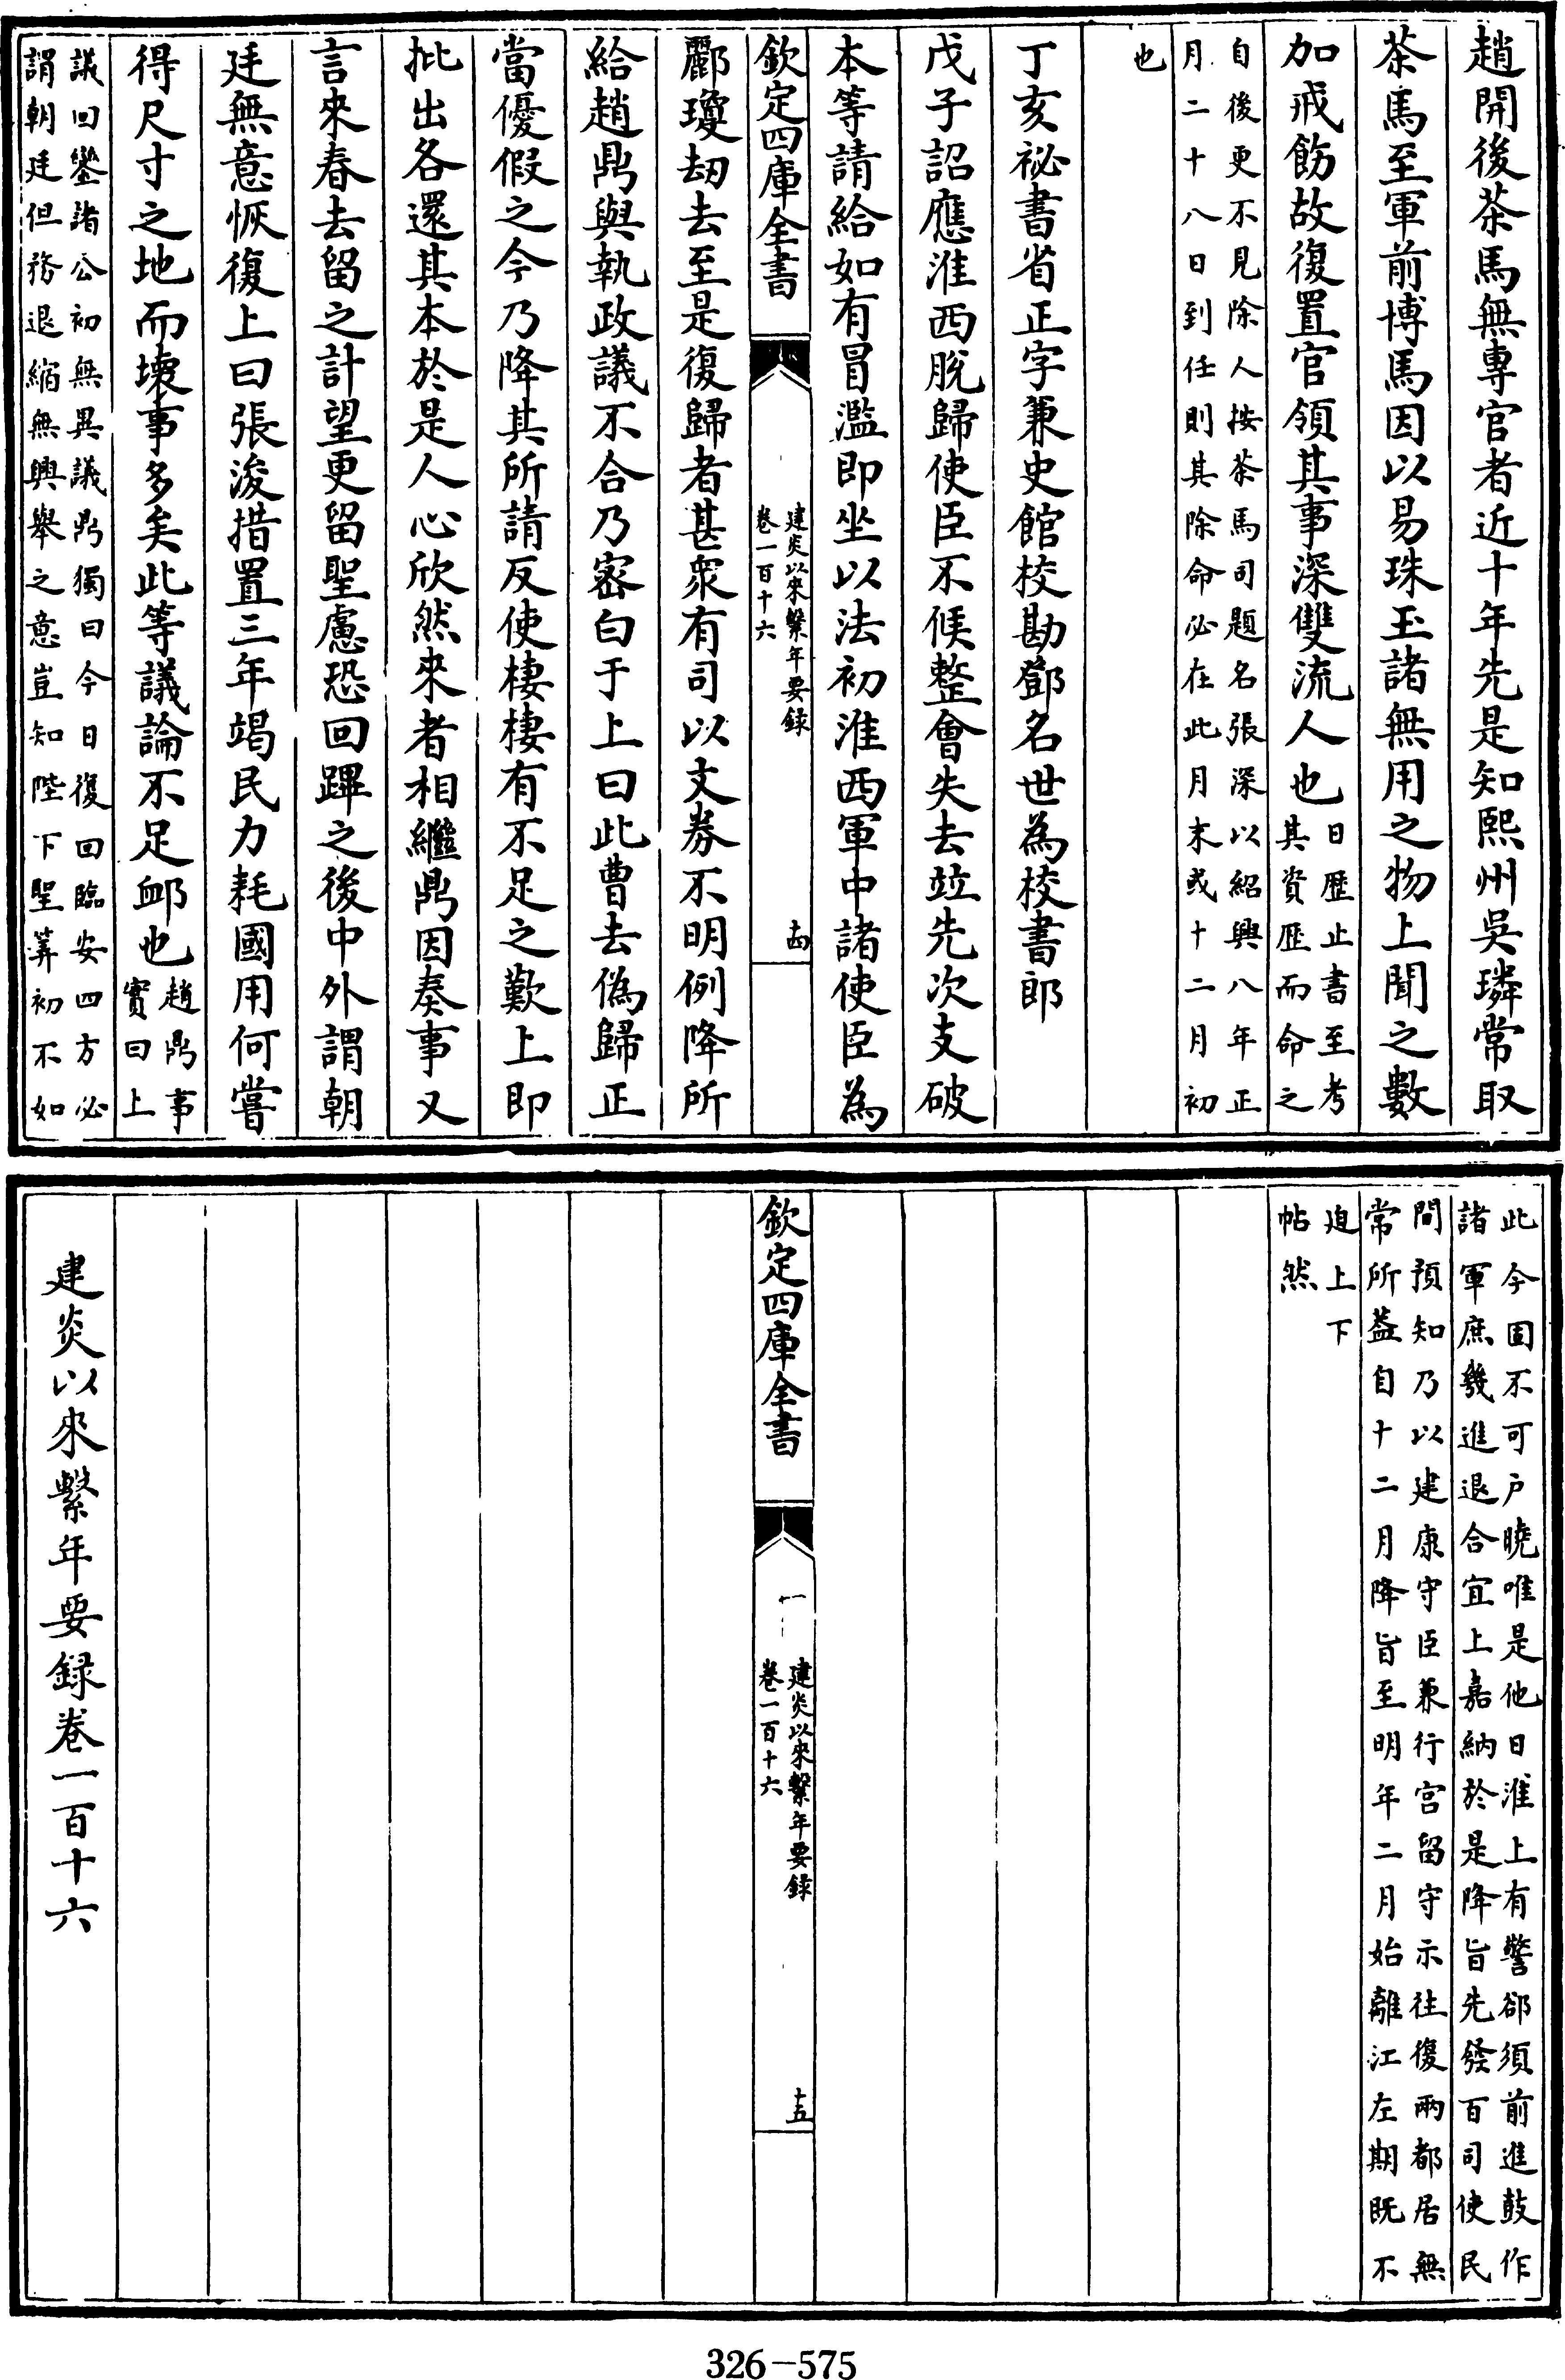 趙開後茶馬無專官者近十年先是知熙州吳璘常取
茶馬至軍前博馬因以易珠玉諸無用之物上聞之數
加戒飭故復置官領其事深雙流人也
日歷止書至考
其資歷而命之
自後更不見除人按茶馬司題名張深以紹興八年正
月二十八日到任則其除命必在此月末或十二月初
也
丁亥祕書省正字兼史館校勘鄧名世為校書郎
戊子詔應淮西脫歸使臣不候整會失去竝先次支破
本等請給如有冒濫即坐以法初淮西軍中諸使臣為
欽定四庫全書
建炎以來繫年要録
卷一百十六
十四
酈瓊刼去至是復歸者甚衆有司以文劵不明例降所
給趙鼎與執政議不合乃密白于上曰此曹去偽歸正
當優假之今乃降其所請反使棲棲有不足之歎上即
批出各還其本於是人心欣然來者相繼鼎因奏事又
言來春去留之計望更留聖慮恐回蹕之後中外謂朝
廷無意恢復上曰張浚措置三年竭民力耗國用何嘗
得尺寸之地而壊事多矣此等議論不足衈也
趙鼎事
實曰上
議回鑾諸公初無異議鼎獨曰今日復回臨安四方必
謂朝廷但務退縮無興舉之意豈知陛下聖筭初不如
此今固不可戶曉唯是他日淮上有警郤須前進鼓作
諸軍庶幾進退合宜上嘉納於是降旨先發百司使民
間預知乃以建康守臣兼行宫留守示往復兩都居無
常所葢自十二月降旨至明年二月始離江左期既不
迫上下
帖然
欽定四庫全書
建炎以來繫年要録
卷一百十六
十五
建炎以來繫年要録卷一百十六
326-575